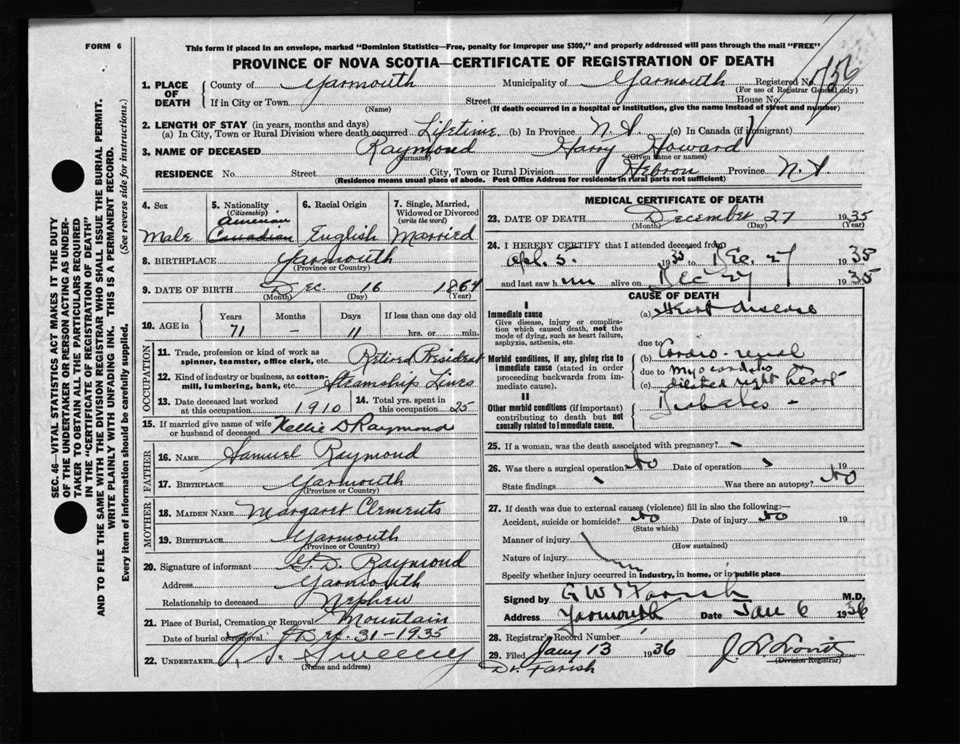 FORM 6
This form if placed in an envelope, marked "Dominion Statistics—Free, penalty for improper use $300," and properly addressed will pass through the mail "FREE"
PROVINCE OF NOVA SCOTIA—CERTIFICATE OF REGISTRATION OF DEATH
1. PLACE OF DEATH
County of Yarmouth Municipality of Yarmouth Registered No.
(For use of Registrar General only)
If in City or Town Street House No.
(Name) (If death occurred in a hospital or institution, give the name instead of street and number)
2. LENGTH OF STAY (in years, months and days)
(a) In City, Town or Rural Division where death occurred Lifetime (b) In Province N.S. (c) In Canada (if immigrant)
3. NAME OF DECEASED Raymond Harry Howard
(Surname) (Given name or names)
RESIDENCE No Street City, Town or Rural Division Hebron Province N.S.
(Residence means usual place of abode. Post Office Address for residents in rural parts not sufficient)
4. Sex
Male
5. Nationality
(Citizenship)
American
Canadian
6. Racial Origin
English
7. Single, Married, Widowed or Divorced
(write the word)
Married
8. BIRTHPLACE Yarmouth
(Province or Country)
9. DATE OF BIRTH Dec. 16 1864
(Month) (Day) (Year)
10. AGE in Years Months Days If less than one day old
71 – 11 hrs. or min.
OCCUPATION
11. Trade, profession or kind of work as spinner, teamster, office clerk, etc. Retired President
12. Kind of industry or business, as cotton-mill, lumbering, bank, etc. Steamship Lines
13. Date deceased last worked at this occupation 1910
14. Total yrs. spent in this occupation 25
15. If married give name of wife or husband of deceased Nellie D Raymond
FATHER
16. Name Samuel Raymond
17. Birthplace Yarmouth
(Province or Country)
MOTHER
18. Maiden Name Margaret Clements
19. Birthplace Yarmouth
(Province or Country)
20. Signature of informant D. Raymond
Address Yarmouth
Relationship to deceased Nephew
21. Place of Burial, Cremation or Removal Mountain
Date of burial or removal Dec. 31 - 1935
22. UNDERTAKER Sweeny
(Name and address)
MEDICAL CERTIFICATE OF DEATH
23. DATE OF DEATH December 27 1935
(Month) (Day) (Year)
24. I HEREBY CERTIFY that I attended deceased from
Apl. 5. 1935 to Dec. 27 1935
and last saw him alive on Dec 27 1935
CAUSE OF DEATH
I
Immediate cause
Give disease, injury or complication which caused death, not the mode of dying, such as heart failure, asphyxia, asthenia, etc.
(a) Heart disease
due to
Morbid conditions, if any, giving rise to immediate cause (stated in order proceeding backwards from immediate cause).
(b) Cardio-renal
due to Myocarditis
(c) dilated right heart
II
Other morbid conditions (if important) contributing to death but not causally related to immediate cause.
Diabetes -
25. If a woman, was the death associated with pregnancy?
26. Was there a surgical operation No Date of operation 19
State findings Was there an autopsy? No
27. If death was due to external causes (violence) fill in also the following:—
Accident, suicide or homicide? No Date of injury No 19
(State which)
Manner of injury
(How sustained)
Nature of injury
Specify whether injury occurred in industry, in home, or in public place
Signed by G W T Farish M.D.
Address Yarmouth Date Jan 6 1936
28. Registrar's Record Number
29. Filed Jany 13 1936
(Division Registrar)
Dr. Farish
SEC. 46—VITAL STATISTICS ACT MAKES IT THE DUTY
OF THE UNDERTAKER OR PERSON ACTING AS UNDER-
TAKER TO OBTAIN ALL THE PARTICULARS REQUIRED
IN THE "CERTIFICATE OF REGISTRATION OF DEATH"
AND TO FILE THE SAME WITH THE DIVISION REGISTRAR WHO SHALL ISSUE THE BURIAL PERMIT.
WRITE PLAINLY WITH UNFADING INK. THIS IS A PERMANENT RECORD.
Every item of information should be carefully supplied. (See reverse side for instructions.)